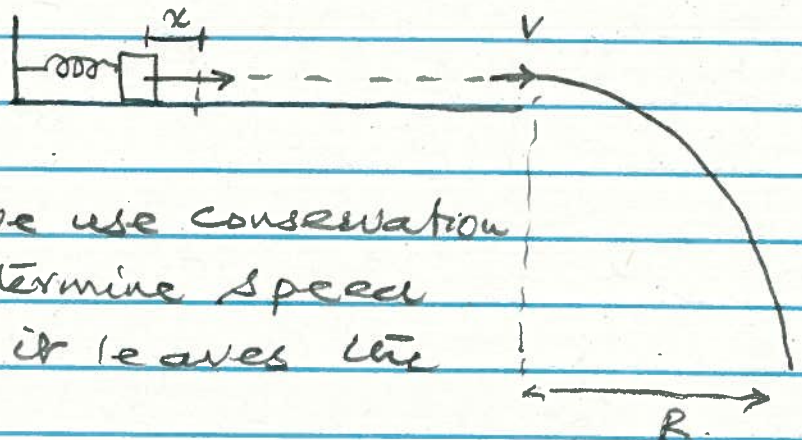 x
V
we use conservation
termine speed
it leaves the
R.